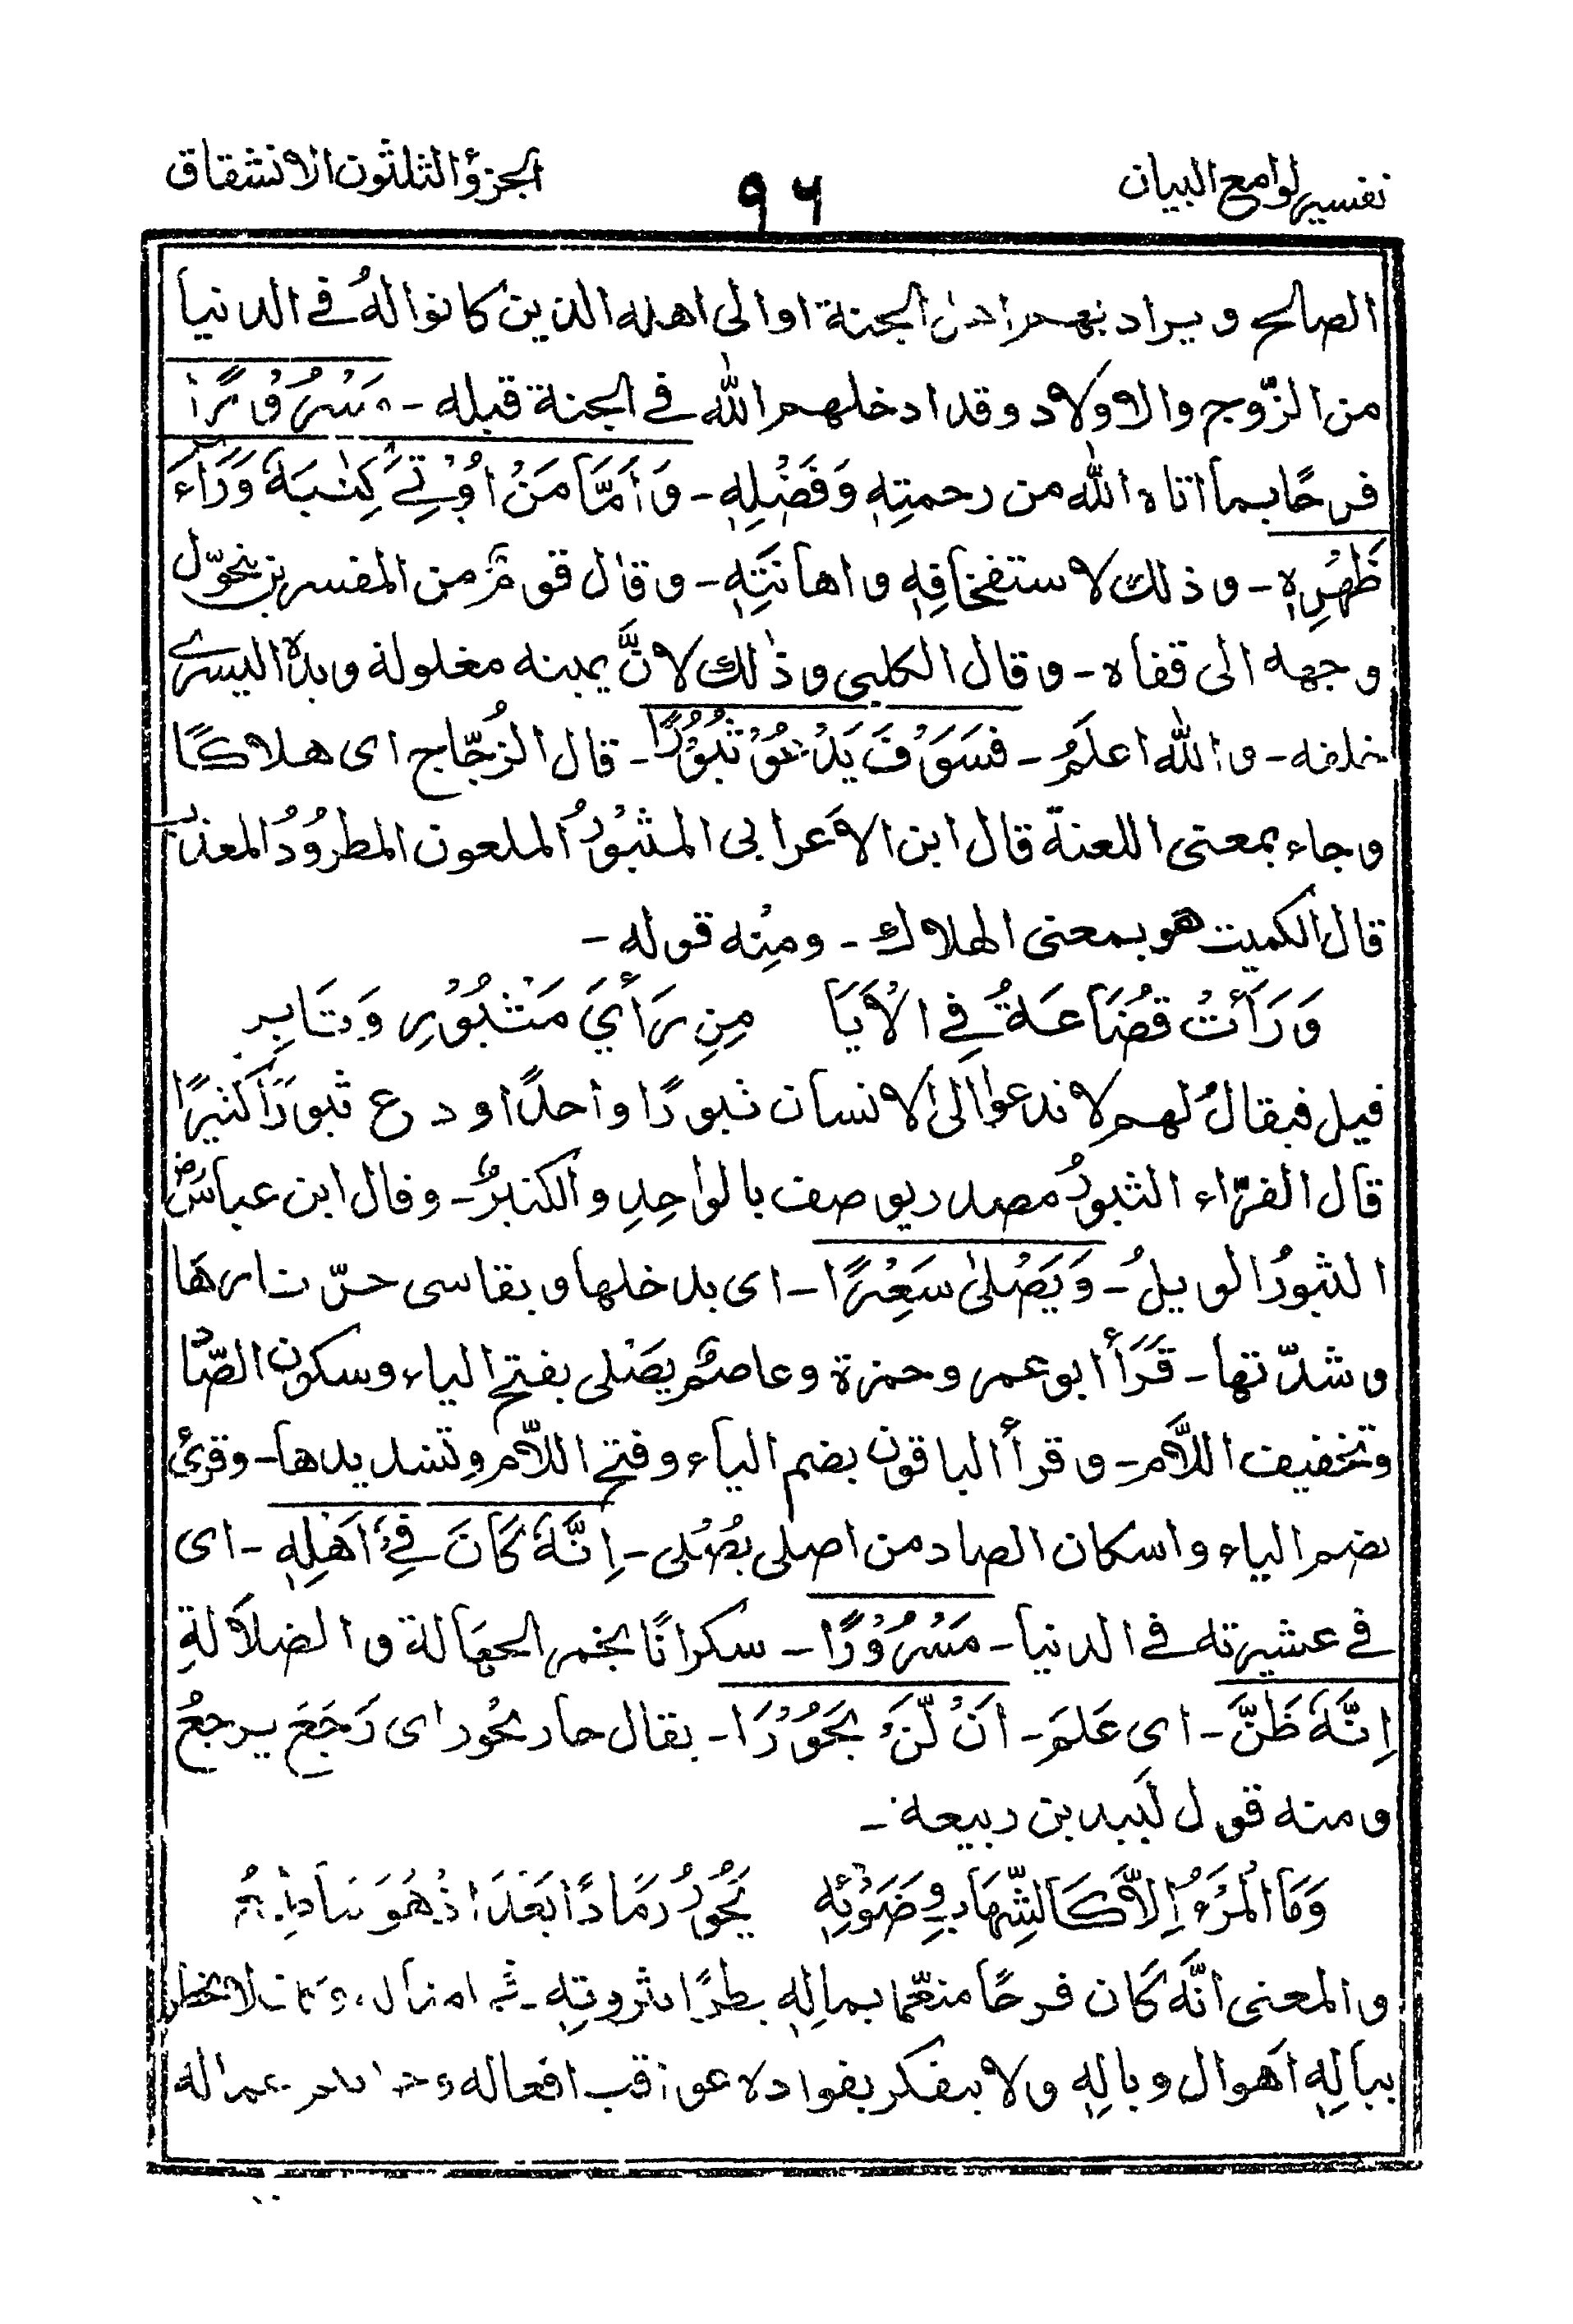 تفسير لوامع البيان
٩٦
الجزؤ الثلثون الانشقاق
الصالح و يراد بهم الجنة او الى اهله الذين كانوا لهُ فى الدنيا
من الزّوج والاولاد وقد ادخلهم الله فى الجنة قبله - مَسْرُوْرًا
فرحًا بما اتاه الله من رحمتِهٖ وَفَضْلِهٖ - وَاَمَّا مَنْ اُوْتِيَ كِتٰبَهٗ وَرَآءَ
ظَهْرِهٖ - وذلك لاستفخافِهٖ واهانتِهٖ - وقال قومٌ من المفسرين بتحوّل
وجهه الى قفاه - وقال الكلبى وذٰلك لانَّ يمينه مغلولة ويده اليسرے
خلفه - والله اعلمُ - فَسَوْفَ يَدْعُوْ ثُبُوْرًا - قال الزُجّاج اى هلاكًا
وجاء بمعنى اللعنة قال ابن الاَعرابى المثبُوْرُ الملعون المطرُوْدُ المعذب
قال الكميت هو بمعنى الهلاك - ومِنْه قوله -
وَرَأَتْ قُضَاعَةُ فِي الْاَيَا مِنِ رَأْيَ مَثْبُوْرِ وَتَابِرِ
قيل فيقالُ لهم لا تدعوا الى الانسان ثبورًا واحدًا و درع ثبورًا كثيرًا
قال الفرّاء الثبورُ مصدر يوصف بالواحِدِ والكثيرُ - وقال ابن عباسؓ
الثبورُ الويلُ - وَيَصْلىٰ سَعِيْرًا - اى يدخلها ويقاسى حرّ نارها
وشدّتها - قَرَأَ ابو عمر وحمزة وعاصمٌ يصَلى بفتح الياء وسكون الصّاد
وتخفيف اللّام - وقرأ الباقون بضم الياء وفتح اللّام وتشديدها - وقرئ
بضم الياء واسكان الصاد من اصلى يُصْلى - اِنَّهٗ كَانَ فِيْ اَهْلِهٖ - اى
فى عشيرته فى الدنيا - مَسْرُوْرًا - سكرانًا بخمر الجهالة والضلالةِ
اِنَّهٗ ظَنَّ - اى عَلمَ - اَنْ لَّنْ يَحُوْرَا - يقال حار يحُور اى رَجَعَ يرجعُ
ومنه قول لَبيد بن ربيعة -
وَمَا الْمَرْءُ اِلَّا كَالشِّهَابِ وَضَوْئِهٖ يَحُوْرُ رَمَادًا بَعْدَ اِذْ هُوَ سَاطِعُ
والمعنى انَّه كَان فرحًا منعّما بمالِهٖ بطرًا بثروتِهٖ - ثم لا يخطر
ببالِهٖ اَهوال وبالِهٖ ولا يتفكر بفواده عواقب افعاله